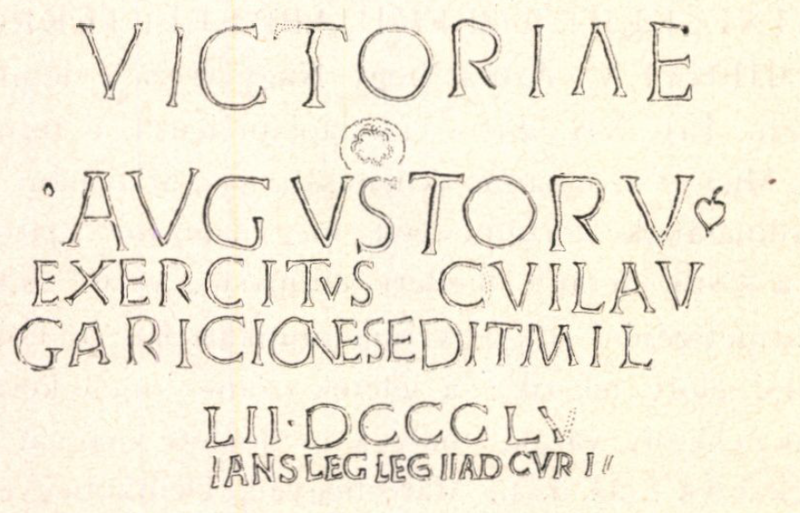 VICTORIAE
AVGVSTORV
EXERCITVS CVILAV
GARICIONESEDITMIL
LII·DCCCLV
IANS LEG LEG IIAD CVR I